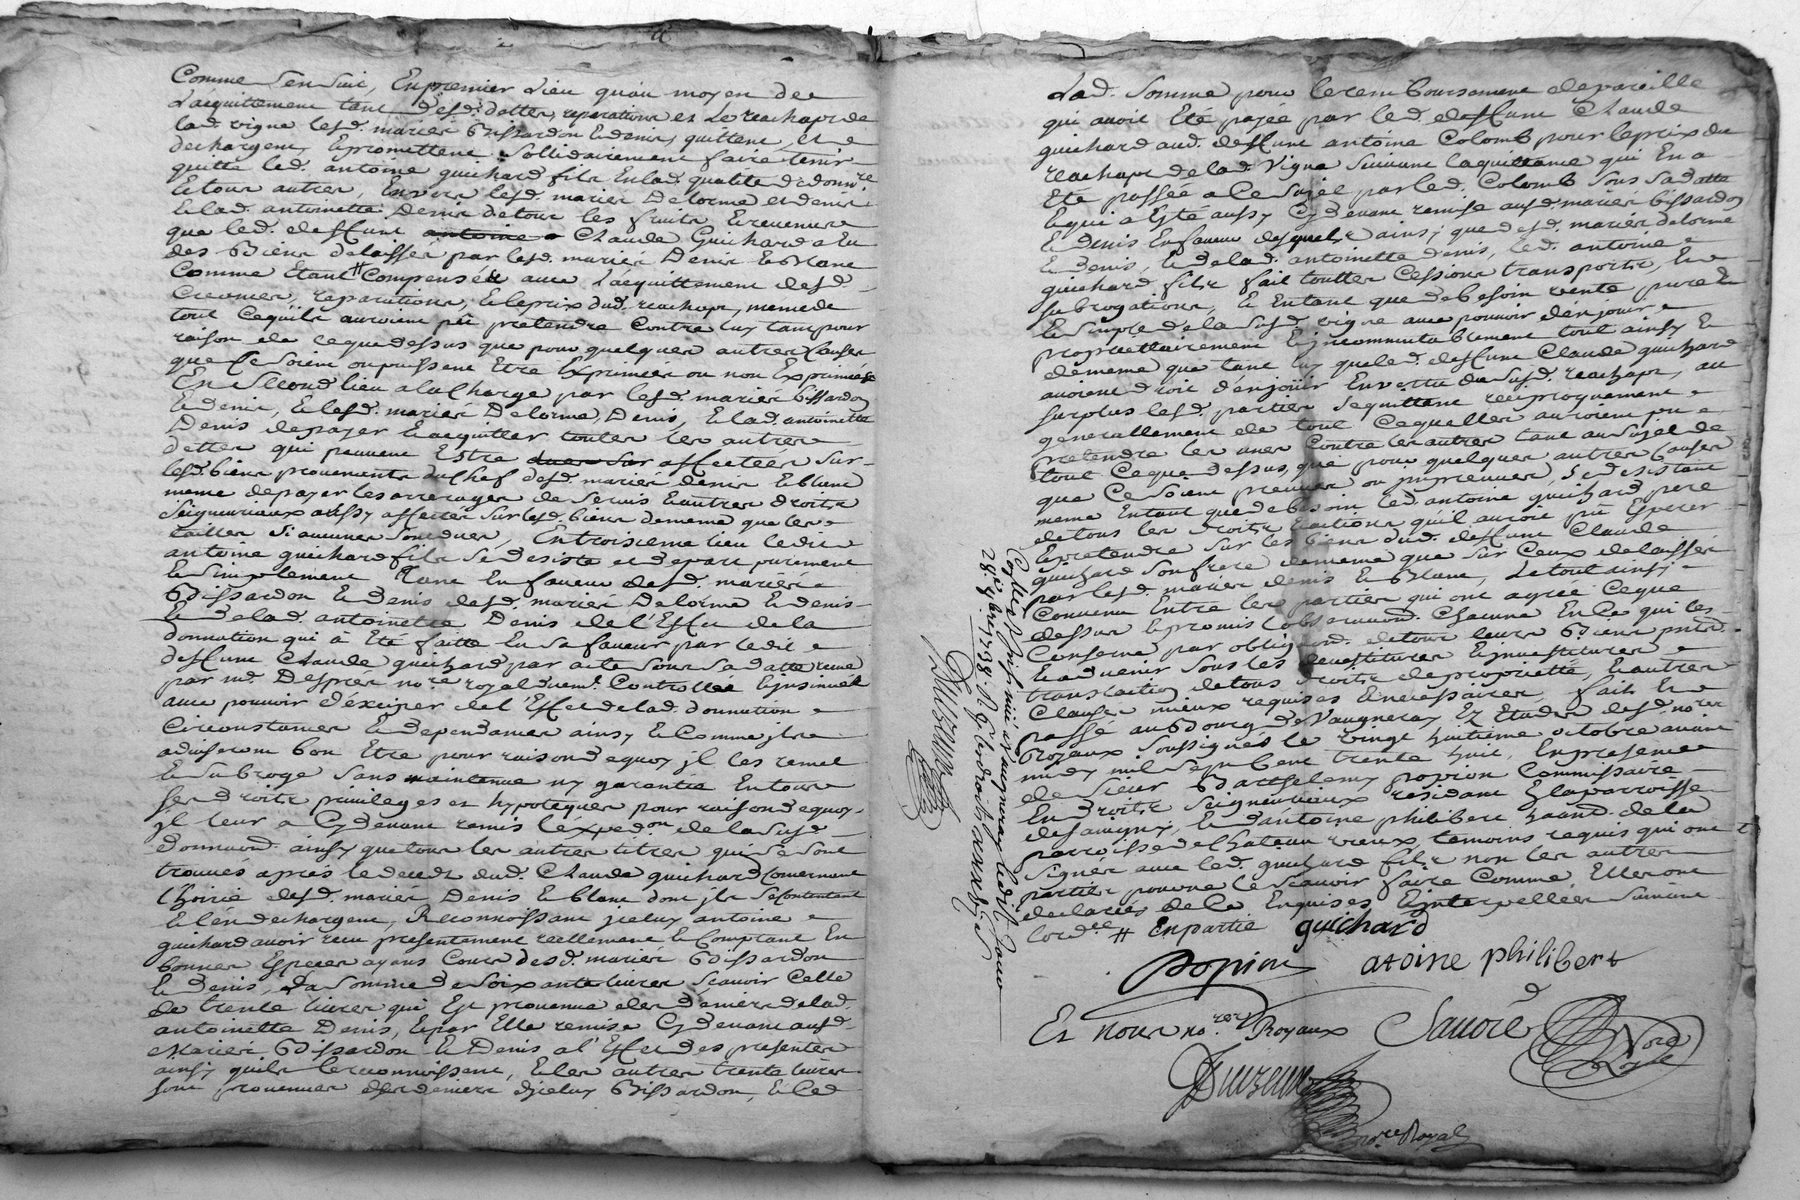 Comme s'en suit, En premier Lieu quau moyen de
L'acquittement tant desd. dettes, reparations et Le reachapt de
lad. vigne lesd. mariés Bissardon Et denis, quittent, et
dechargent, Et promettent sollidairement faire tenir
quitte led. antoine guichard fils En lad. qualité
Et tous autres, Envers lesd. mariés Delorme et denis
Et lad. antoinette Denis de tous les fruits, Et revenus
que led. deffunt antoine Claude Guichard a Eu
des Biens delaissés par lesd. mariés Denis Et Blanc
Comme Etant # Compensés avec L'acquittement desd.
Creances, reparations, Et le prix dud. reachapt, meme de
tout Ce quils auroient pû pretendre Contre luy tam pour
raison de Ce que dessus que pour quelques autres Causes
que Ce soient ou puissent Etre Exprimées ou non Exprimées
En second lieu a la Charge par lesd. mariés Bissardon
Et denis, Et lesd. mariés Delorme, Denis, Et lad. antoinette
Denis de payer Et acquitter toutes les autres
dettes qui peuvent Estre dues sur affectées sur
lesd. biens provenants du Chef desd. mariés denis Et blanc
meme de payer les arrerages de servis Et autres droits
seigneuriaux aussy affectés sur lesd. biens de meme que les
tailles si aucunes sont dues, En troisieme lieu ledit
antoine guichard fils se desiste et depart purement
Et simplement Tant En faveur desd. mariés
Bissardon Et denis desd. mariés Delorme Et denis
Et de lad. antoinette Denis de l'Effet de la
donnation qui à Eté faitte En sa faveur par ledit
deffunt Claude guichard par acte sous sa datte reçue
par me. Desprez nore. royal duemt. Controllée Et insinuée
avec pouvoir d'éxciper de l'Effet de lad. donnation
Circonstances Et dependances ainsy Et Comme ils
adviseront bon Etre pour raison de quoy il les remet
Et subroge sans maintenue ny garentie En tous
ses droits privileges et hypoteques pour raison de quoy
il leur a Cy devant remis l'éxpedon. de la susd.
donnaon. ainsy que tous les autres titres qui se sont
trouvés après le decedt dud. Claude guichard Concernant
l'hoirie desd. mariés Denis Et blanc dont ils se Contentent
Et l'én dechargent, Reconnoissant jcelux antoine
guichard avoir reçu presentement reellement Et Comptant En
bonnes Especes ayans Cours desd. mariés Bissardon
Et denis, La somme de soixante livres scavoir Celle
de trente livres qui Est provenue des deniers de lad.
antoinette Denis, Et par Elle remise Cy devant ausd.
Mariés Bissardon Et Denis a l'Effet des presentes
ainsy quils le reconnoissent, Et les autres trente livres
sont provenues des deniers djcelux Bissardon, Et Led
Lad. somme pour le remboursement de pareille
qui avoit Eté payée par led. deffunt Claude
guichard aud. deffunt antoine Colomb pour le prix du
reachapt de lad. Vigne suivant la quittance qui En a
Eté passée a Ce sujet par led. Colomb sous sa datte
Et qui a Esté aussy Cy devant remise ausd. mariés Bissardon
Et denis En faveur desquels ainsi que desd. mariés delorme
Et denis, Et de lad. antoinette denis, led. antoine
guichard fils fait touttes Cessions transports, Et
subrogations, Et En tant que de besoin vente pure Et
Et simple de la susd. vigne avec pouvoir d'én jouir
proprietairement Et jncommutablement tout ainsy Et
de meme que tant luy que led. deffunt Claude guichard
avoient droit d'én joüir En vertu du susd. reachapt, au
surplus lesd. parties se quittent reciproquement
generallement de tout Ce quelles auroient pu
pretendre les unes Contre les autres tant au sujet de
tout Ce que dessus, que pour quelques autres Causes
que Ce soient preveues ou jmpreveues, Se desistant
meme En tant que de besoin led. antoine guichard pere
de tous les droits Et actions quil auroit pû Esperer
Et pretendre sur les biens dud. deffunt Claude
guichard son frere de meme que sur Ceux delaissés
par lesd. mariés denis Et Blanc, Le tout ainsy
Convenu Entre les parties qui ont agréé Ce que
dessus Et promis l'observaon. Chacune En Ce qui les
Conserne par obligaon. de tous leurs Biens pnts.
Et advenir sous les devestitures Et jnvestitures
translation de tous droits de proprieté, Et autres
Clauses mieux requises Et necessaires, fait Et
passé au Bourg de Vaugneray Ez Etudes desd. nores
Royaux soussignés le vingt huitieme octobre avant
midy mil sept Cent trente huit, En presence
de sieur Barthelemy popion Commissaire
En droits seigneuriaux residant En la parroisse
de savigny, Et d'antoine philibert habnt. de la
parroisse de Chateau vieux temoins requis qui ont
signés avec led. guichard fils non les autres
parties pour ne le scavoir faire Comme Elles ont
declarées de Ce Enquises Et jnterpellées suivant
lordce # En partie guichard
popion atoine philibert
Et nous nores Royaux Savoie
Nore
Royal
nore Royal